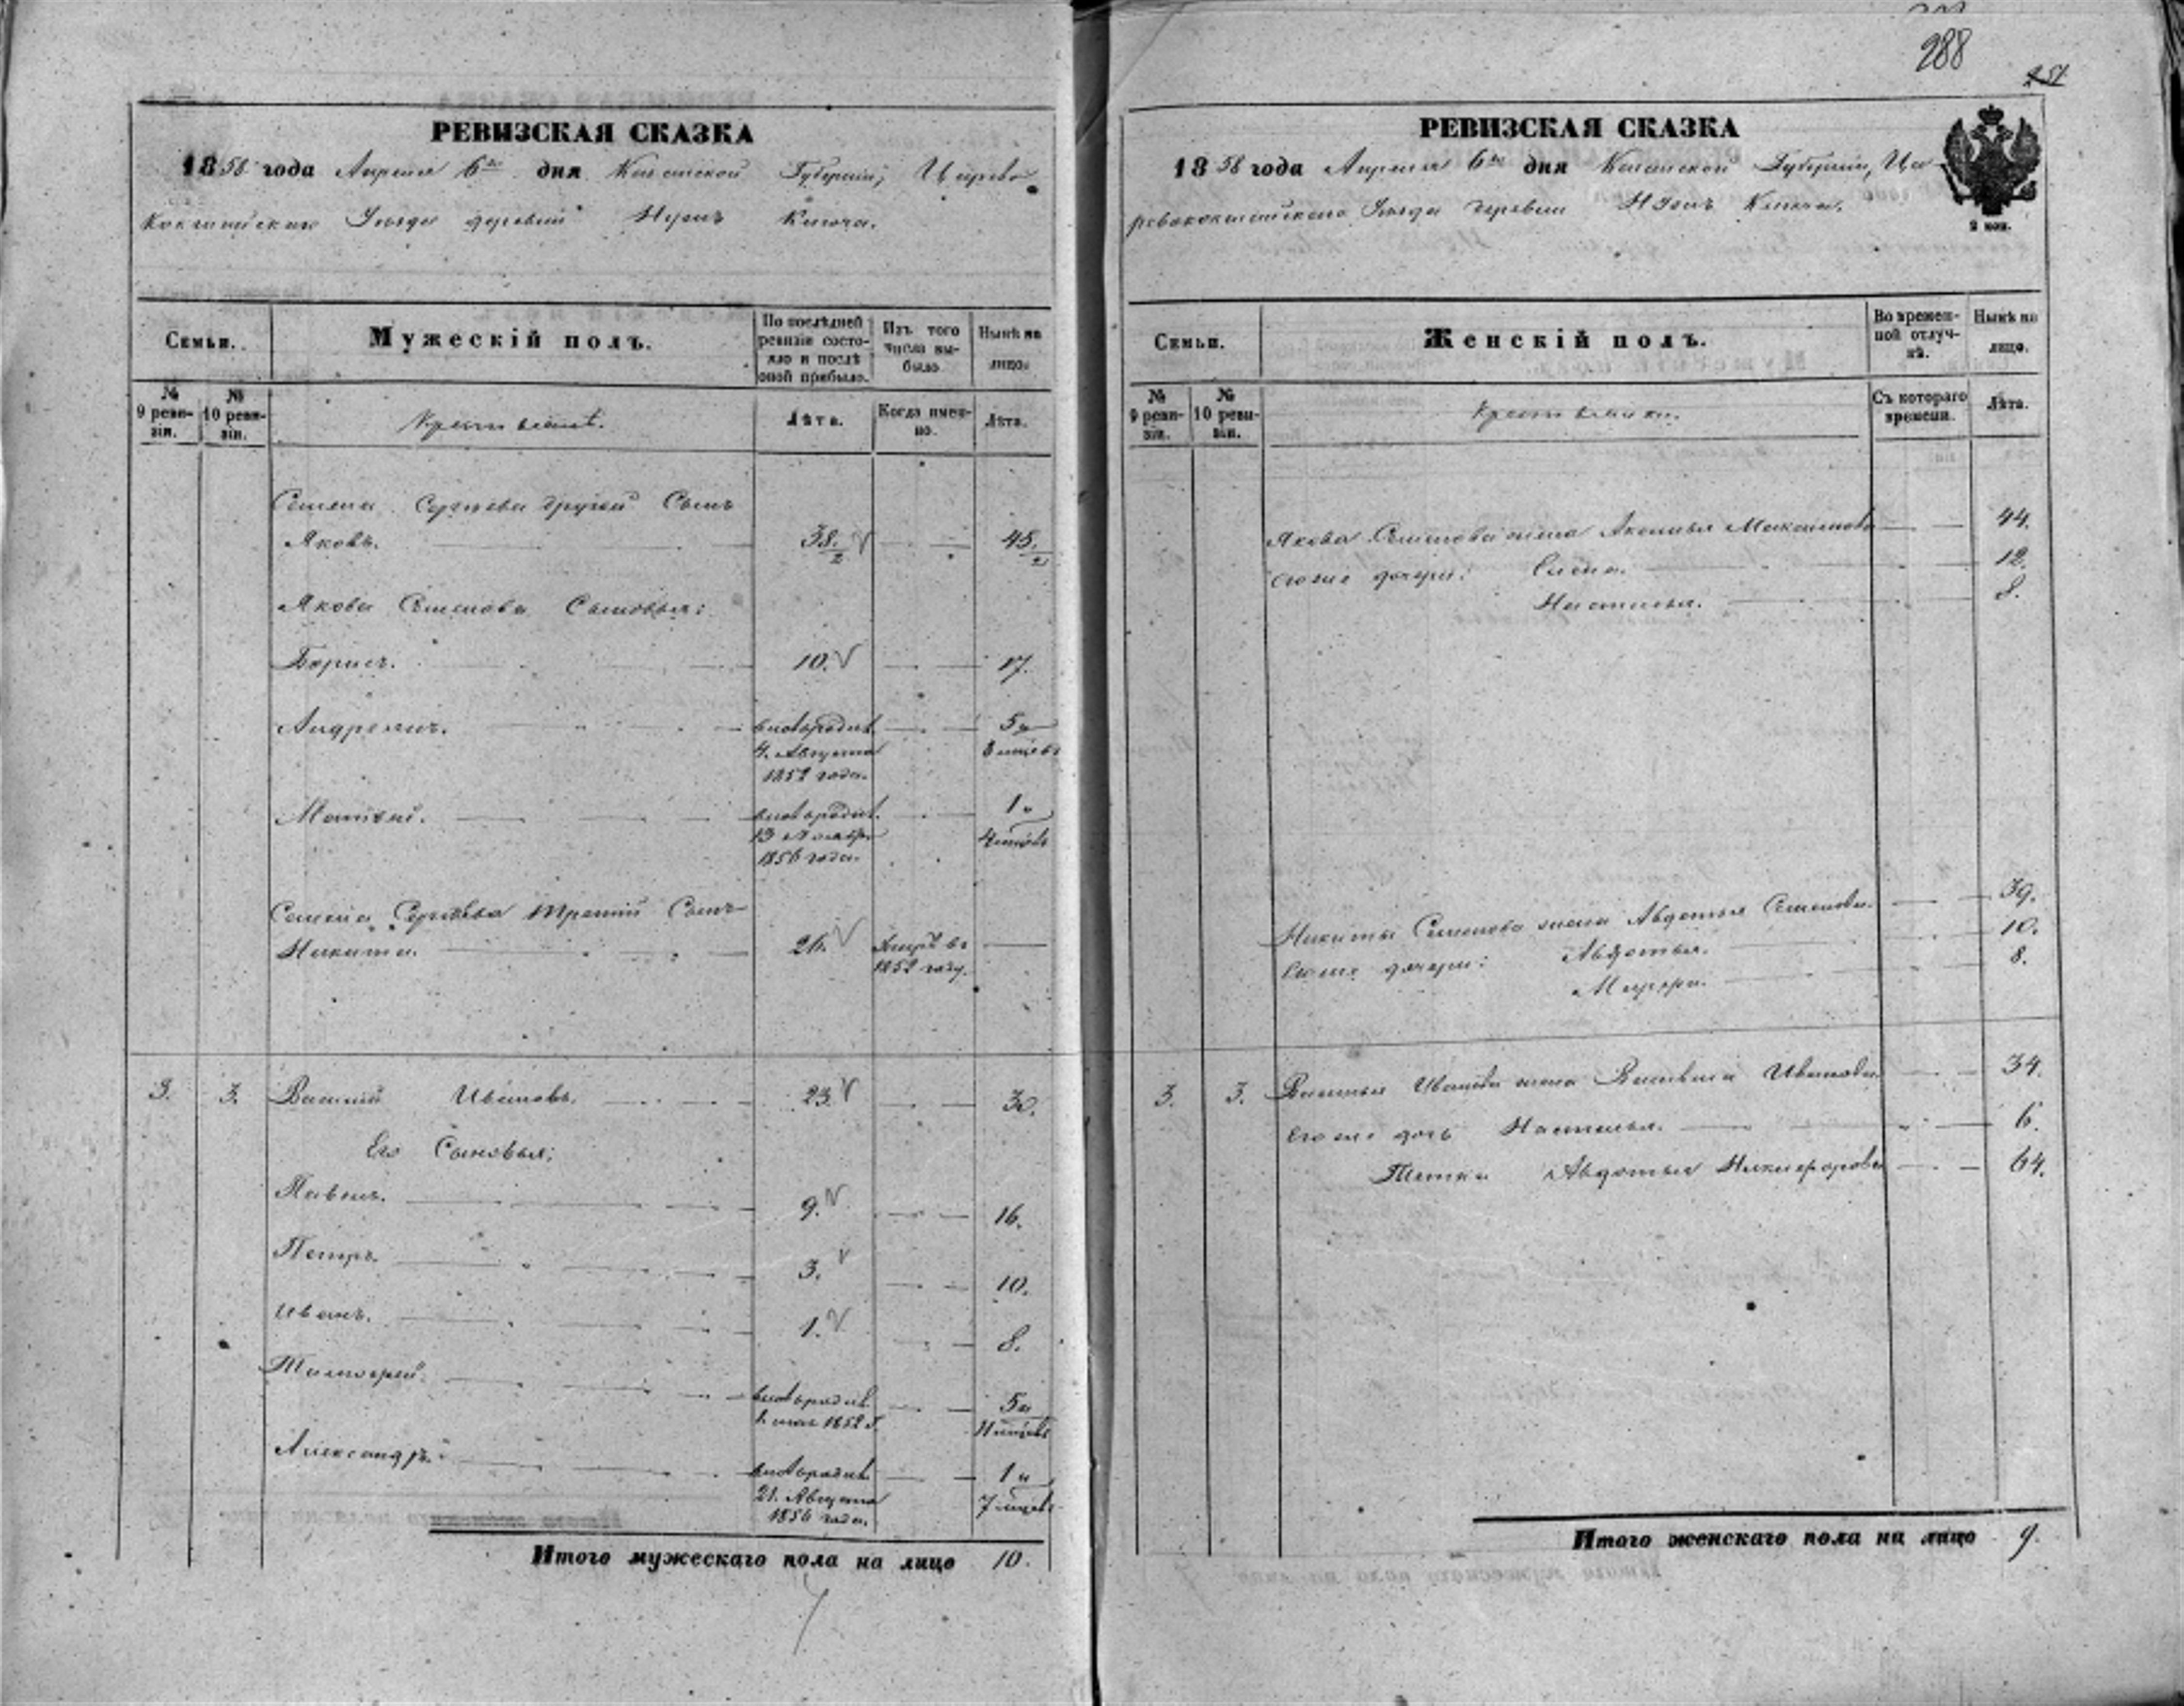 288
251
РЕВИЗСКАЯ СКАЗКА
1858 года Апреля 6го дня Казанской Губернии, Царево
кокшайскаго Уезда деревни Нуръ Кюча.
Семьи.
Мужескій полъ.
По послѣдней ревизіи состояло и послѣ оной прибыло.
Изъ того числа выбыло
Нынѣ на лицо.
№ 9 ревизіи.
№ 10 ревизіи.
Крестьяне.
Лѣта.
Когда именно.
Лѣта.
Семена Сергѣева другой Сынъ
Яковъ. 38. 45.
2 2
Якова Семенова Сыновья:
Борисъ. 10. 17.
Андреянъ. вновьрожд. 5 и
4. Августа 8 мѣцевъ
1852 года.
Матвей. вновьрожд. 1 и
13 Ноября 4 мѣцовъ
1856 года.
Семена Сергѣева третій Сынъ
Никита. 26. Умеръ въ
1852 году.
3. 3. Василій Ивановъ. 23. 30.
Его Сыновья;
Павелъ. 9. 16.
Петръ. 3. 10.
Иванъ. 1. 8.
Тимофей. вновьрожд. 5 и
1. мая 1852 г. 11 мѣцовъ
Александръ. вновьрожд. 1 и
21. Августа 7 мѣцовъ
1856 года.
Итого мужескаго пола на лицо 10.
РЕВИЗСКАЯ СКАЗКА
1858 года Апреля 6го дня Казанской Губерніи, Ца
ревококшайскаго Уезда деревни Кюча.
2 коп.
Семьи.
Женскій полъ.
Во временной отлучкѣ.
Нынѣ на лицо.
№ 9 ревизіи.
№ 10 ревизіи.
Крестьянки.
Съ котораго времени.
Лѣта.
Якова Семенова жена Аколина Максимова 44.
его же дочери: Елена. 12.
Настасья. 8.
Никиты Семенова жена Авдотья Семенова. 39.
Его же дочери: Авдотья. 10.
Марфа. 8.
3. 3. Василья Иванова жена Васивина Иванова 34.
его же дочь Настасья. 6.
Тетка Авдотья Никифорова 64.
Итого женскаго пола на лицо 9.